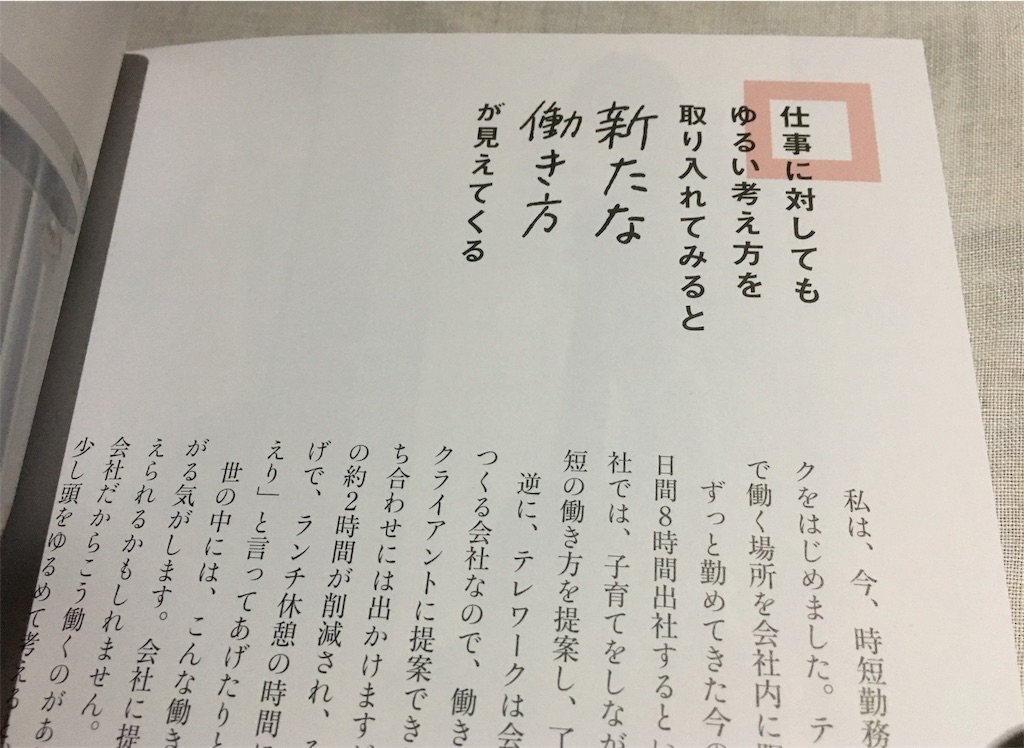 仕事に対しても
ゆるい考え方を
取り入れてみると
新たな
働き方
が見えてくる
私は、今、時短勤務
クをはじめました。テ
で働く場所を会社内に
ずっと勤めてきた今の
日間8時間出社するとい
社では、子育てをしなが
短の働き方を提案し、了
逆に、テレワークは会
つくる会社なので、働き
クライアントに提案でき
ち合わせには出かけますが
の約2時間が削減され、
げで、ランチ休憩の時間に
えり」と言ってあげたりと
世の中には、こんな働き
がる気がします。会社に提
えられるかもしれません。
会社だからこう働くのがあ
少し頭をゆるめて考える